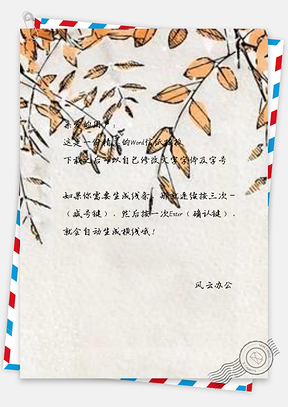 亲爱的用户:
这是一份精美的Word信纸模板
下载之后可以自己修改文字字体及字号
如果你需要生成线条,那就连续按三次-
(减号键),然后按一次Enter(确认键),
就会自动生成横线哦!
风云办公